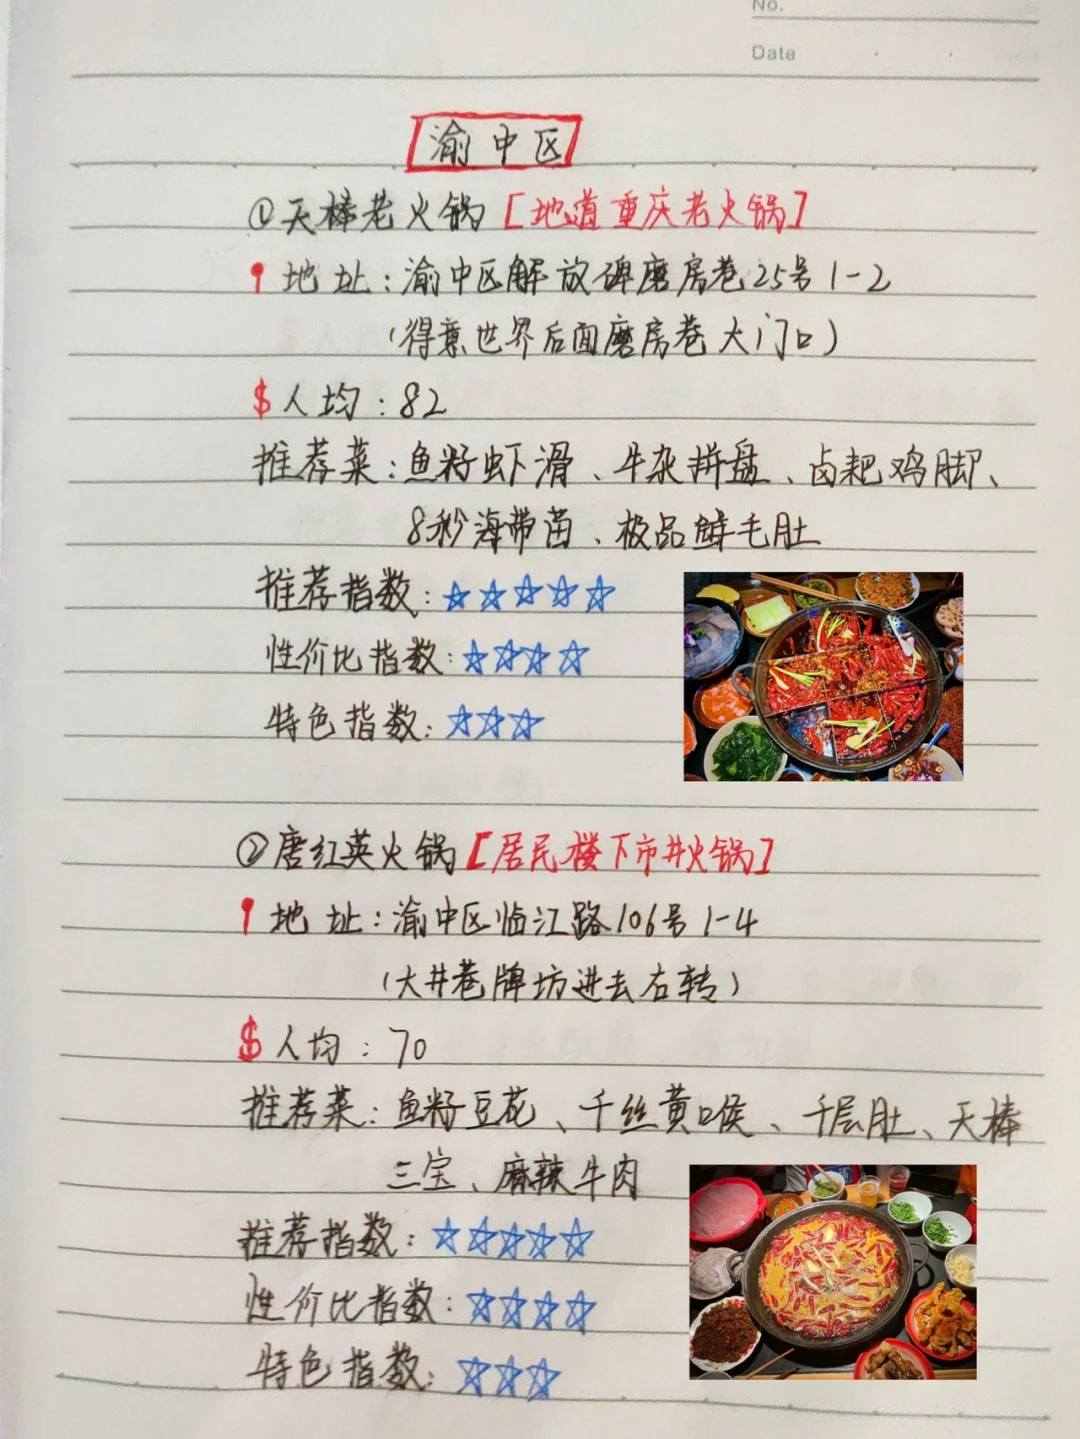 No.
Date
渝中区
①天棒老火锅[地道重庆老火锅]
地址:渝中区解放碑磨房巷25号1-2
(得意世界后面磨房巷大门口)
$人均:82
推荐菜:鱼籽虾滑、牛杂拼盘、卤耙鸡脚、
8秒海带苗、极品鲜毛肚
推荐指数:☆☆☆☆☆
性价比指数:☆☆☆☆
特色指数:☆☆☆
②唐红英火锅[居民楼下市井火锅]
地址:渝中区临江路106号1-4
(大井巷牌坊进去右转)
$人均:70
推荐菜:鱼籽豆花、千丝黄喉、千层肚、天棒
三宝、麻辣牛肉
推荐指数:☆☆☆☆☆
性价比指数:☆☆☆☆
特色指数:☆☆☆